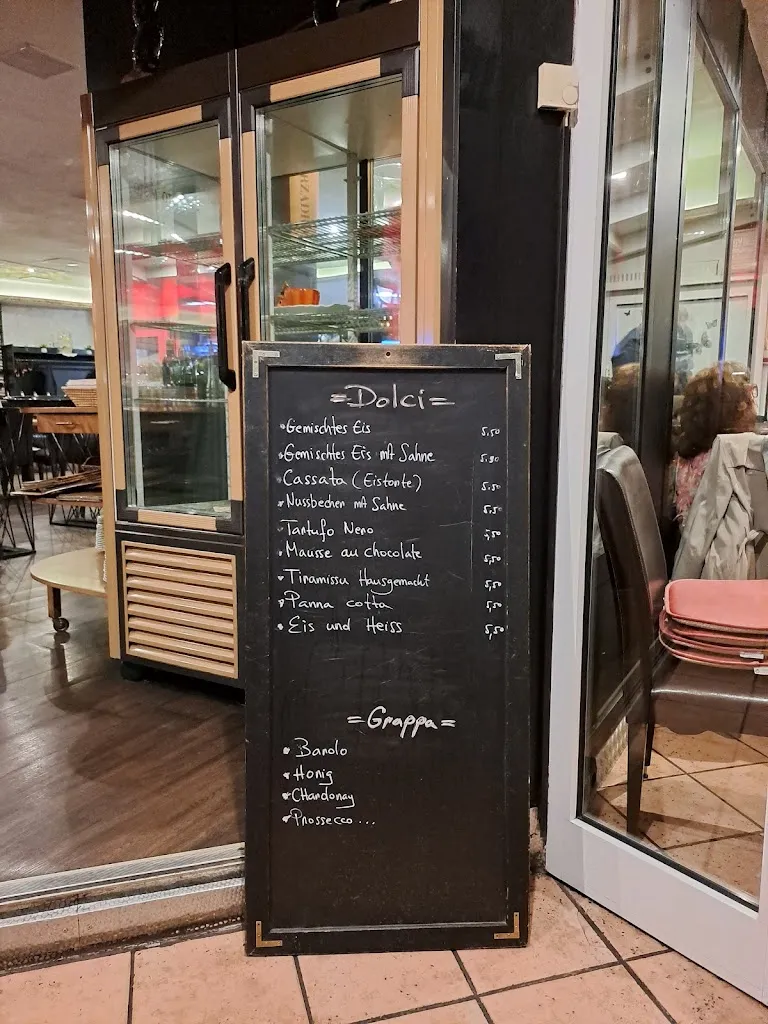 =Dolci=
•Gemischtes Eis 5,50
•Gemischtes Eis mit Sahne 5,90
•Cassata (Eistorte) 5,50
•Nussbecher mit Sahne 5,50
•Tartufo Nero 5,50
•Mausse au chocolate 5,50
•Tiramissu Hausgemacht 5,50
•Panna cotta 5,50
•Eis und Heiss 5,50
=Grappa=
•Barolo
•Honig
•Chardonay
•Prossecco...